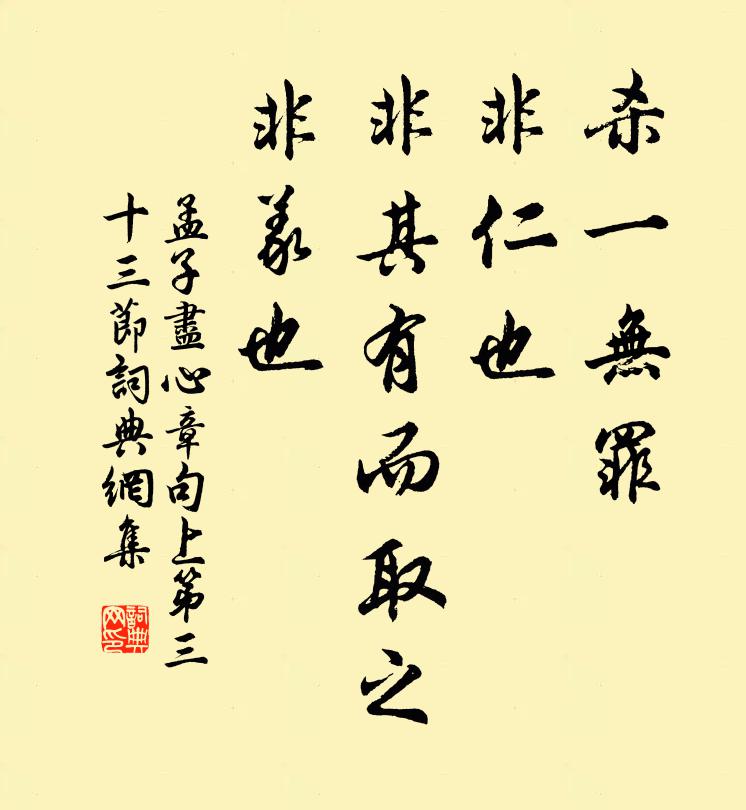 杀一無罪
非仁也
非其有而取之
非義也
孟子盡心章句上第三
十三節詞典網集
詞典
网印